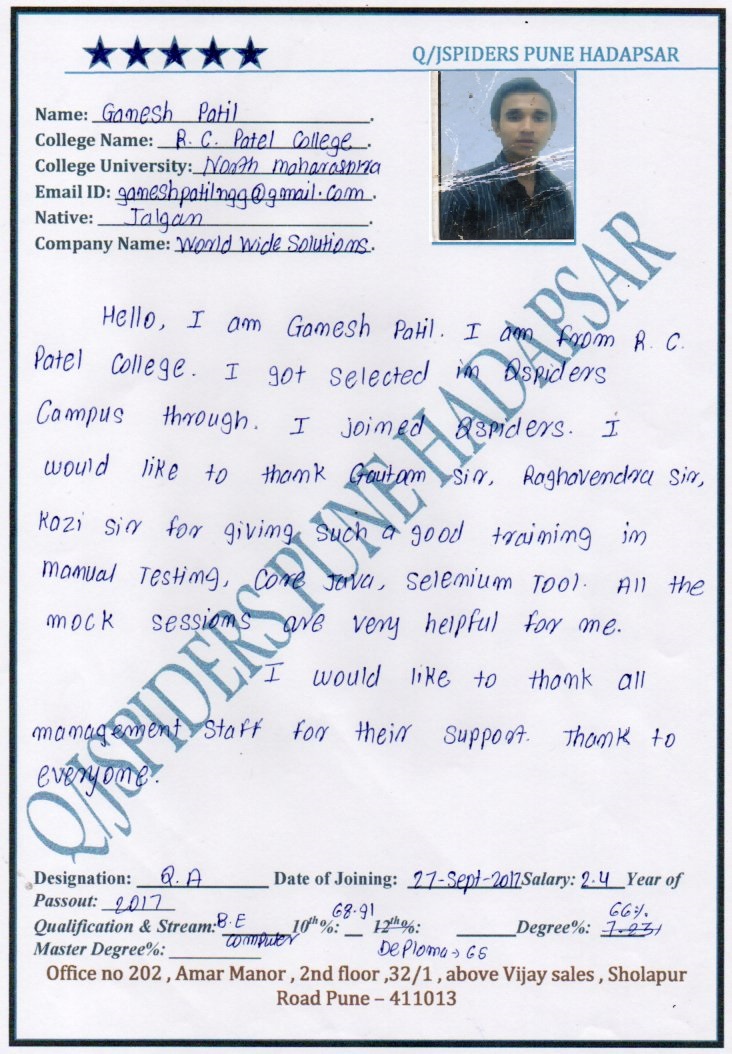 Q/JSPIDERS PUNE HADAPSAR
Name: Ganesh Patil.
College Name: R. C. Patel College.
College University: North maharashtra
Email ID: ganeshpatilngg@gmail.com
Native: Jalgan.
Company Name: World Wide Solutions.
Hello, I am Ganesh Patil. I am from R. C.
Patel College. I got selected in Qspiders
Campus through. I joined Qspiders. I
would like to thank Gautam Sir, Raghavendra Sir,
Kazi Sir for giving such a good training in
manual Testing, Core Java, Selenium Tool. All the
mock sessions are very helpful for me.
I would like to thank all
management Staff for their Support. Thank to
everyone.
Q/JSPIDERS PUNE HADAPSAR
Designation: Q.A Date of Joining: 27-Sept-2017 Salary: 2.4 Year of
Passout: 2017
Qualification & Stream: B.E Computer 10th%: 68.91 12th%: Deploma → 66 Degree%: 66%
Master Degree%:
Office no 202 , Amar Manor , 2nd floor ,32/1 , above Vijay sales , Sholapur
Road Pune – 411013